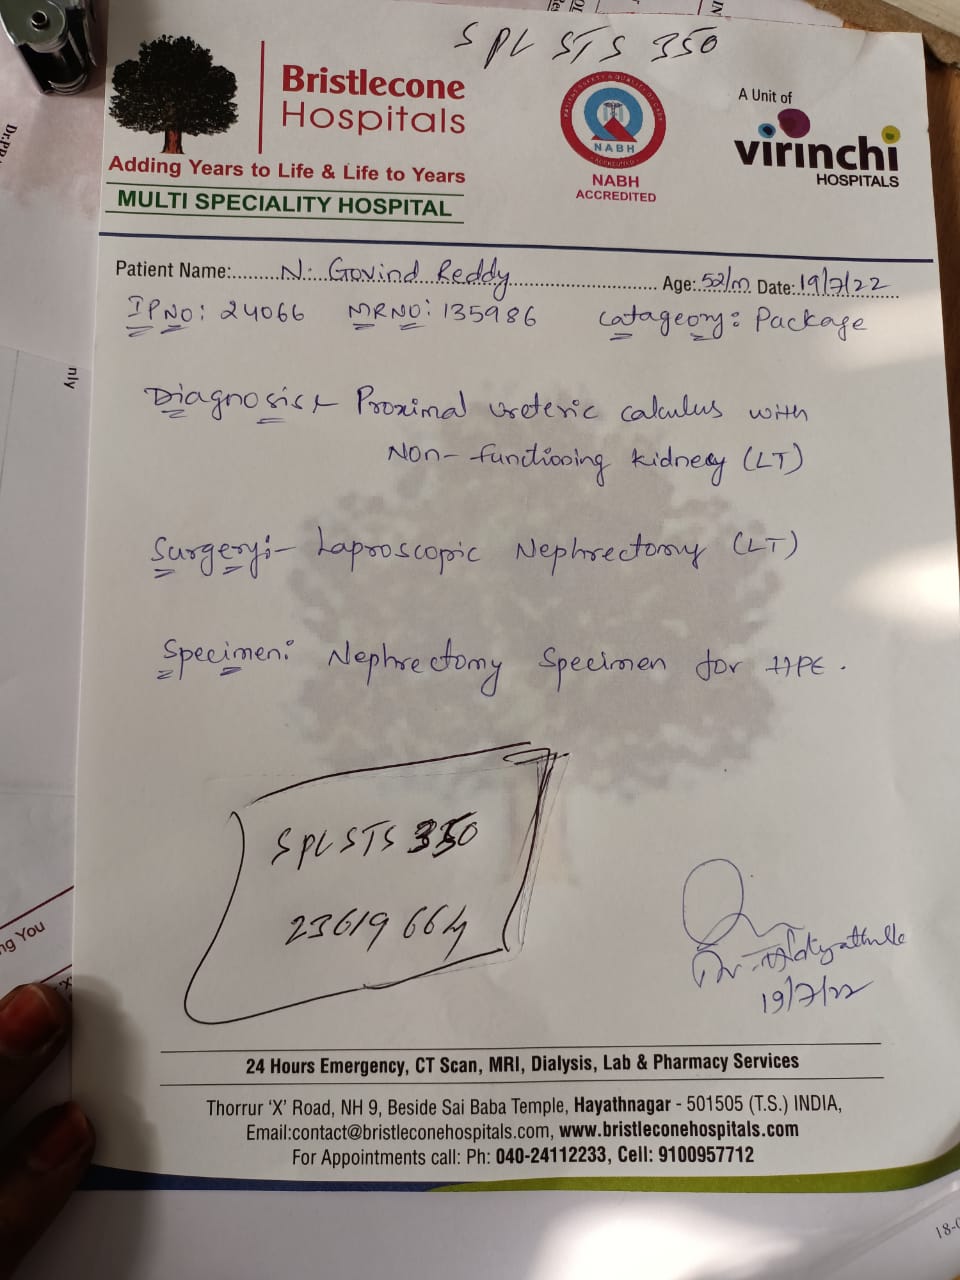 SPL STS 350
Bristlecone
Hospitals
Adding Years to Life & Life to Years
MULTI SPECIALITY HOSPITAL
NABH
NABH
ACCREDITED
A Unit of
virinchi
HOSPITALS
Patient Name:........N. Govind Reddy........ Age: 52/m Date: 19/7/22
IPNO: 24066 MRNO: 135986 Catageory: Package
Diagnosis:- Proximal ureteric calculus with
Non-functioning kidney (LT)
Surgery:- Laproscopic Nephrectomy (LT)
Specimen: Nephrectomy Specimen for HPE.
SPL STS 350
23619664
Dr.
19/7/22
24 Hours Emergency, CT Scan, MRI, Dialysis, Lab & Pharmacy Services
Thorrur 'X' Road, NH 9, Beside Sai Baba Temple, Hayathnagar - 501505 (T.S.) INDIA,
Email:contact@bristleconehospitals.com, www.bristleconehospitals.com
For Appointments call: Ph: 040-24112233, Cell: 9100957712
nly
ng You